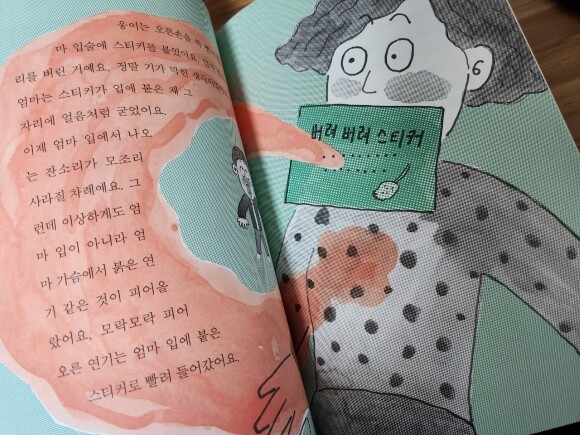 웅이는 오른손을
마 입술에 스티커를 붙였어요.
리를 버린 거예요. 정말 기가 막힌
엄마는 스티커가 입에 붙은 채 그
자리에 얼음처럼 굳었어요.
이제 엄마 입에서 나오
는 잔소리가 모조리
사라질 차례예요. 그
런데 이상하게도 엄
마 입이 아니라 엄
마 가슴에서 붉은 연
기 같은 것이 피어올
랐어요. 모락모락 피어
오른 연기는 엄마 입에 붙은
스티커로 빨려 들어갔어요.
버려 버려 스티커